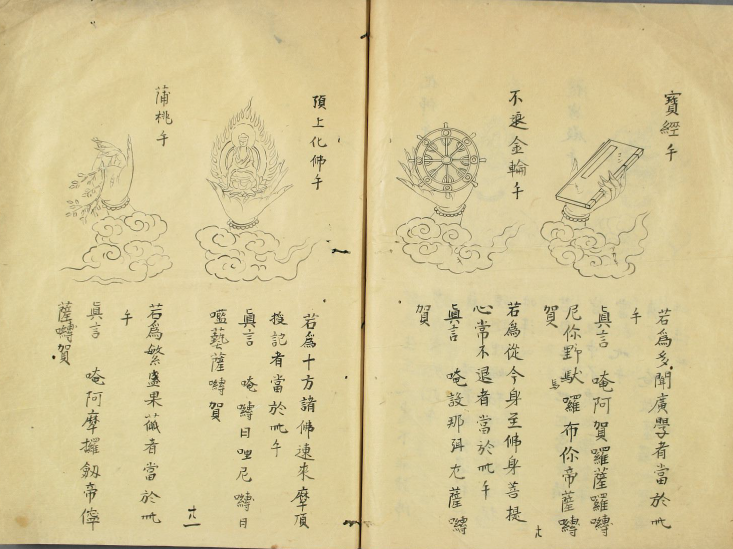 寶經手
若爲多聞廣學者當於此
手
眞言 唵阿賀囉薩囉嚩
尼你野馱囉布你帝薩嚩
賀
不退金輪手
若爲從今身至佛身菩提
心常不退者當於此手
眞言 唵設那弭尢薩嚩
賀
頂上化佛手
若爲十方諸佛速來摩頂
授記者當於此手
眞言 唵嚩日哩尼嚩日
㘕藝薩嚩賀
蒲桃手
若爲繁盛果蓏者當於此
手
眞言 唵阿摩攞劔帝
薩嚩賀